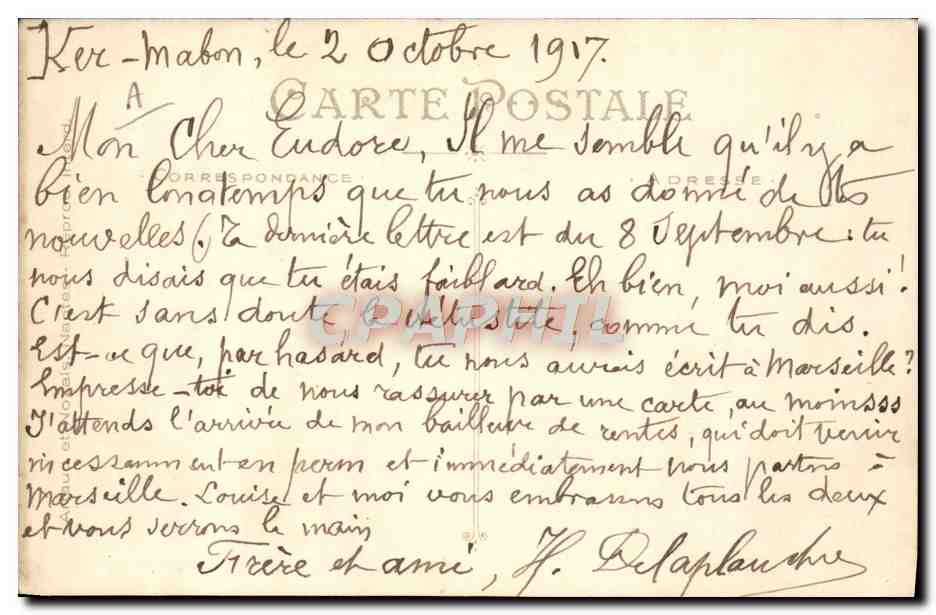 Ker-Mabon, le 2 Octobre 1917.
A
CARTE POSTALE
Mon Cher Eudore, Il me semble qu'il y a
CORRESPONDANCE
ADRESSE
bien longtemps que tu nous as donné de tes
nouvelles (. Ta dernière lettre est du 8 Septembre: tu
nous disais que tu étais faiblard. Eh bien, moi aussi!
C'est sans doute la vétusté, comme tu dis.
CPAPHIL
Est-ce que, par hasard, tu nous aurais écrit à Marseille?
Empresse-toi de nous rassurer par une carte, au moinsss
J'attends l'arrivée de mon bailleur de rentes, qui doit venir
incessamment en perm et immédiatement nous partons à
Marseille. Louise et moi vous embrassons tous les deux
et vous serrons la main
Frère et ami, H. Delaplanche
Nantes. Reprod. Interd.